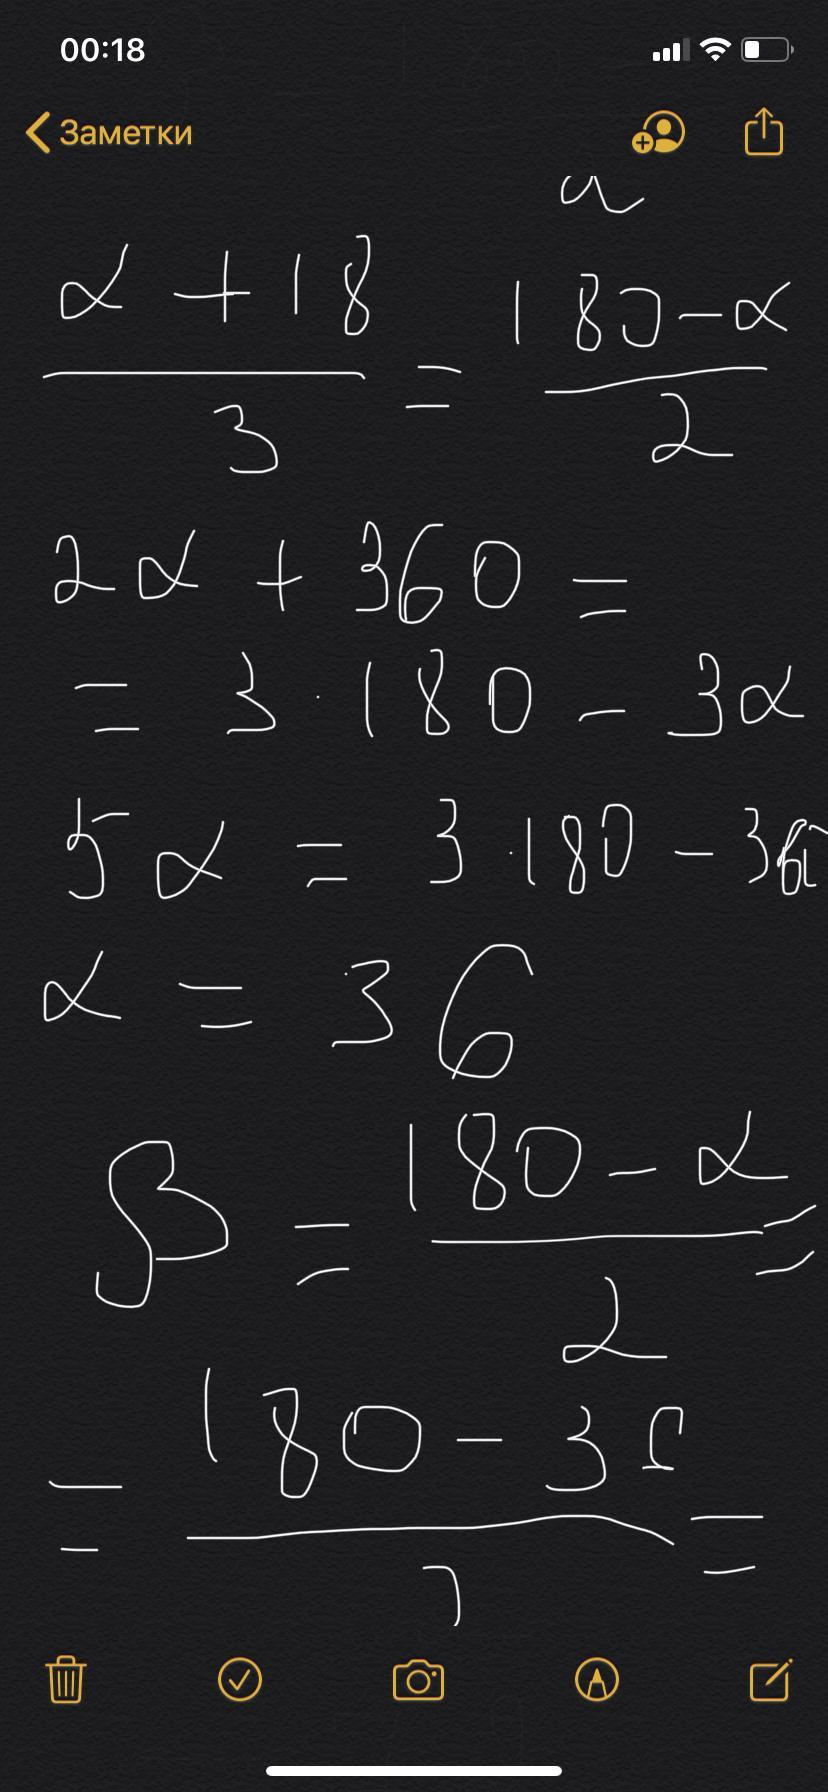 00:18
Заметки
α + 18 / 3 = 180 - α / 2
2α + 360 =
= 3 · 180 - 3α
5α = 3 · 180 - 36
α = 36
β = 180 - α / 2 =
= 180 - 3 / 2 =